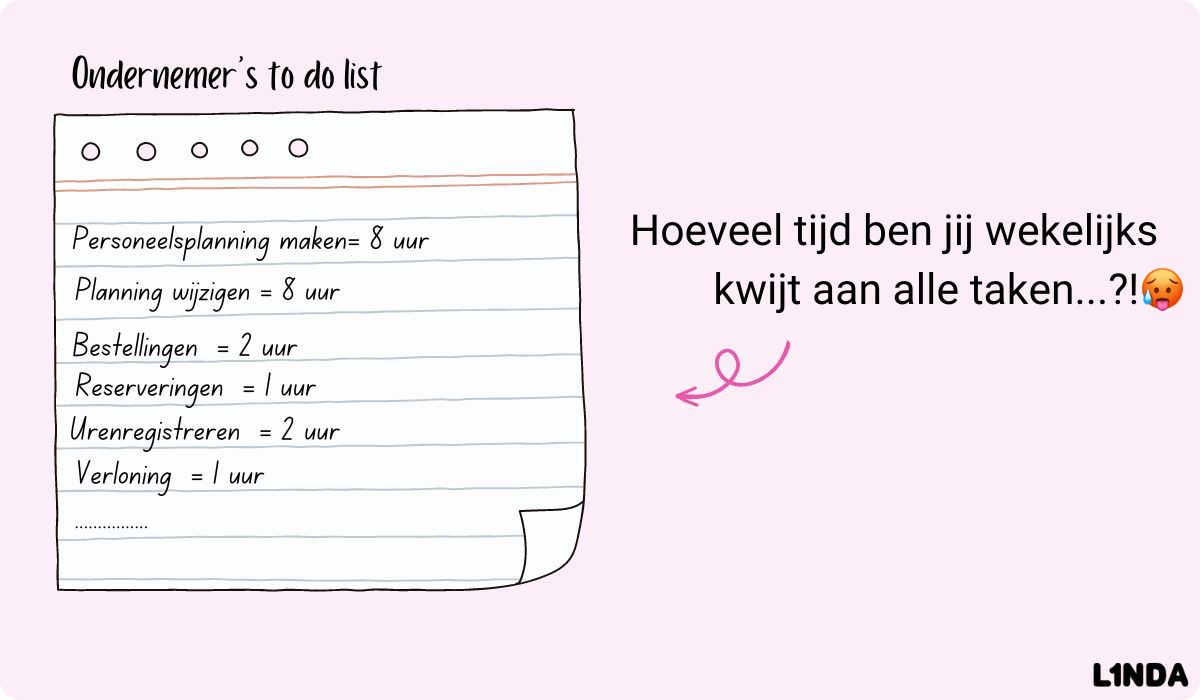 Ondernemer's to do list
Personeelsplanning maken= 8 uur
Planning wijzigen = 8 uur
Bestellingen = 2 uur
Reserveringen = 1 uur
Urenregistreren = 2 uur
Verloning = 1 uur
................
Hoeveel tijd ben jij wekelijks
kwijt aan alle taken...?!🥵
L1NDA